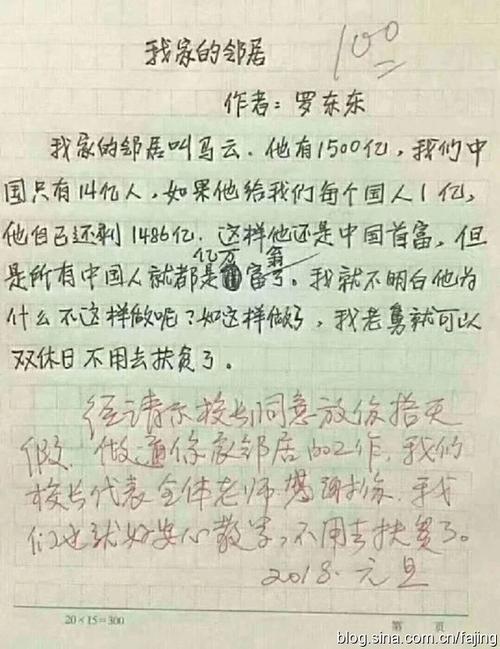 我家的邻居
100
作者：罗东东
我家的邻居叫马云．他有1500亿，我们中
国只有14亿人，如果他给我们每个国人1亿，
他自己还剩1486亿．这样他还是中国首富，但
亿万 翁
是所有中国人就都是富了。我就不明白他为
什么不这样做呢？如这样做了，我老舅就可以
双休日不用去扶贫了。
经请示校长同意放你拾天
假．做通你家邻居的工作，我们
校长代表全体老师感谢你．我
们也就好安心教学，不用去扶贫了。
2018.元旦
20×15=300
第 页
blog.sina.com.cn/fajing